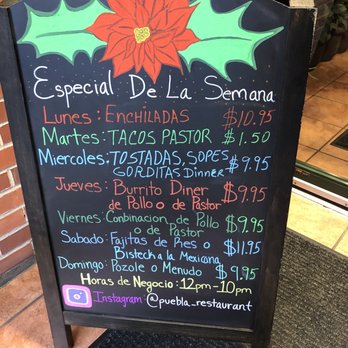 Especial De La Semana
Lunes: Enchiladas $10.95
Martes: Tacos Pastor $1.50
Miercoles: Tostadas, Sopes $9.95
Gorditas Dinner
Jueves: Burrito Diner $9.95
de Pollo o de Pastor
Viernes: Conbinacion de Pollo $9.95
o de Pastor
Sabado: Fajitas de Ries o $11.95
Bistech a la Mexicana
Domingo: Pozole o Menudo $9.95
Horas de Negocio: 12pm-10pm
Instagram: @puebla_restaurant